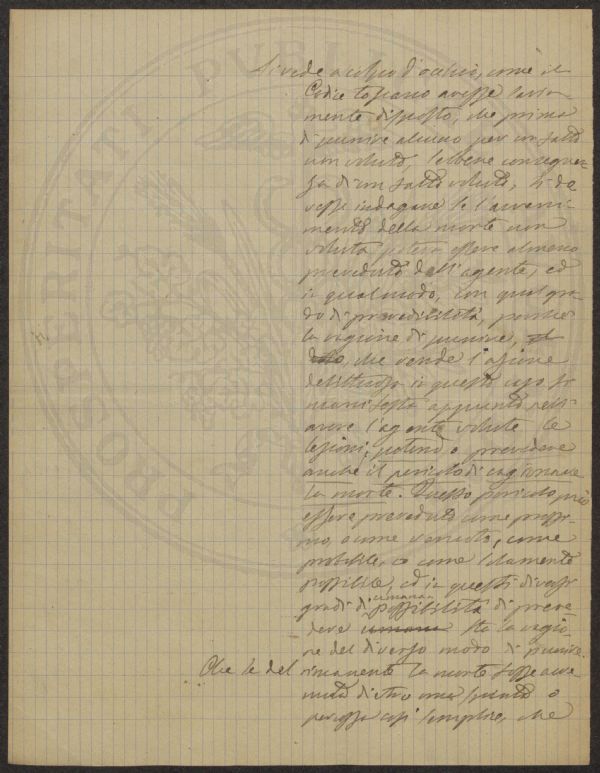 Si vede a colpo d'occhio, come il
Codice toscano avesse savia-
mente disposto, che prima
di punire alcuno per un fatto
non voluto, sebbene conseguen-
za di un fatto voluto, si do
vesse indagare se l'avveni-
mento della morte non
voluta poteva essere almeno
preveduto dall'agente, ed
in qual modo, con qual gra-
do di prevedibilità, perché
la ragione di punire,
che rende l'azione
delittuosa in questo caso, si
manifesta appunto nell'
avere l'agente voluto le
lesioni, potendo prevedere
anche il pericolo di cagionare
la morte. Questo pericolo può
essere preveduto come prossi-
mo, o come remoto, come
probabile, o come solamente
possibile, ed in questi diversi
umana
gradi di possibilità di preve
dere umana sta la ragio-
ne del diverso modo di punire.
Che se del rimanente la morte fosse avve-
nuta dietro una spinta o
percossa così semplice, che
PROSPERITATI PUBLI